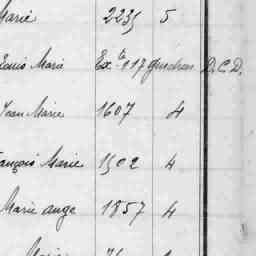 Marie 2235 5
Louis Marie Ex te 117 D.C.D.
Jean Marie 1607 4
François Marie 1502 4
Marie ange 1857 4